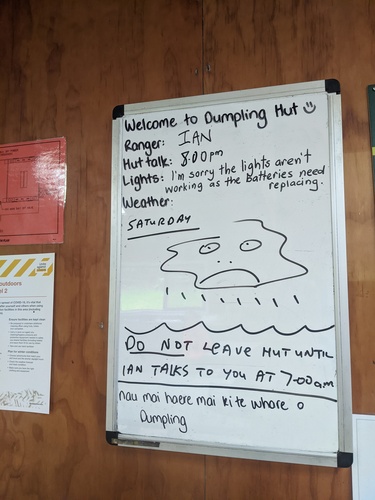 Welcome to Dumpling Hut
Ranger: IAN
Hut talk: 8:00pm
Lights: I'm sorry the lights aren't
working as the batteries need
replacing.
Weather:
SATURDAY
DO NOT LEAVE HUT UNTIL
IAN TALKS TO YOU AT 7-00am
nau mai haere mai ki te whare o
Dumpling
outdoors